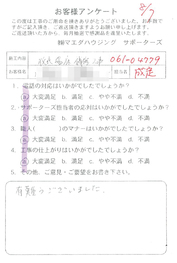 8/9
お客様アンケート
この度は工事のご用命を賜りありがとうございました。お手数で
すがご記入頂き、ご返送頂きますようお願い申し上げます。
ご返送頂いた方から、毎月抽選で感謝品を発送いたします。
㈱マエダハウジング サポーターズ
施工内容
061-04779
お客様名
担当者
1. 電話の対応はいかがでしたでしょうか?
a. 大変満足 b. 満足 c. やや不満 d. 不満
2. サポーターズ担当者の対応はいかがでしたでしょうか?
a. 大変満足 b. 満足 c. やや不満 d. 不満
3. 職人( )のマナーはいかがでしたでしょうか?
a. 大変満足 b. 満足 c. やや不満 d. 不満
4. 工事の仕上がりはいかがでしたでしょうか?
a. 大変満足 b. 満足 c. やや不満 d. 不満
5. その他、ご意見・ご要望をお書き下さい。
ございました